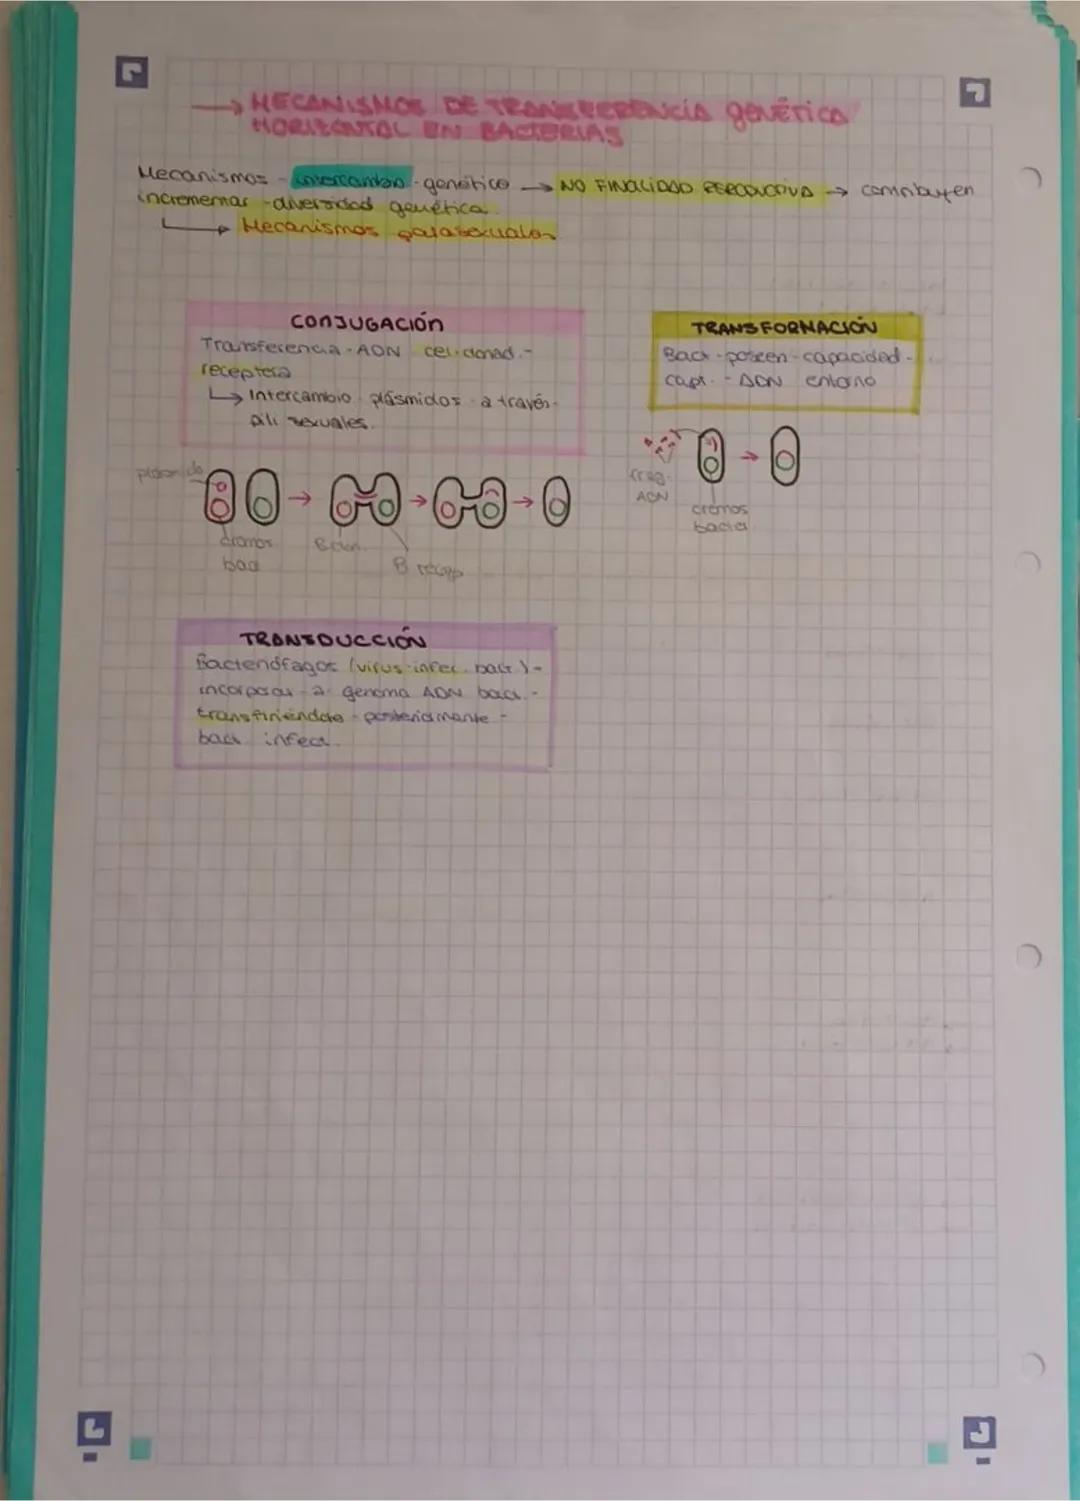 → MECANISMOS DE TRANSFERENCIA genÉTICA
HORIZONTAL EN BACTERIAS
Mecanismos - intercambio - genético → NO FINALIDAD REPRODUCTIVA → contribuyen
incrementar - diversidad genética.
↳ Mecanismos parasexuales
CONJUGACIÓN
Transferencia - ADN cel. donad. -
receptora
↳ Intercambio plásmidos - a través -
pili sexuales.
TRANSFORMACIÓN
Bact - poseen - capacidad -
capt. - ADN entorno
plásmido
cromos
bact
B don.
B recep
frag.
ADN
cromos
bacter
TRANSDUCCIÓN
Bacteriófagos (virus infec. bact.) -
incorporar - a - genoma ADN bact. -
transfiriéndolo - posteriormente -
bact infect.